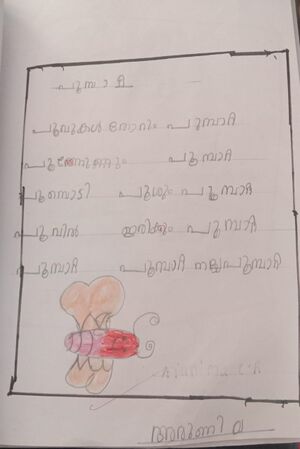 പൂമ്പാറ്റ
പൂവുകൾ തോറും പൂമ്പാറ്റ
പൂന്തേനുണ്ണും പൂമ്പാറ്റ
പൂമ്പൊടി പൂശും പൂമ്പാറ്റ
പൂവിൽ ഇരിക്കും പൂമ്പാറ്റ
പൂമ്പാറ്റ പൂമ്പാറ്റ നല്ലപൂമ്പാറ്റ